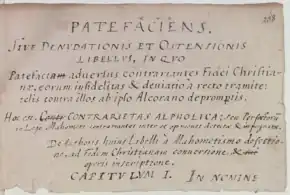 PATEFACIENS.
SIVE DENUDATIONIS ET OSTENSIONIS
LIBELLUS, IN QUO
Patefaciam adversus contrariantes Fidei Christia-
nae, eorum infidelitas & deviatio a recto tramite:
telis contra illos ab ipso Alcorano depromptis.
Hoc est CONTRARIETAS ALPHOLICA: seu Perpetuus
in Lege Mahometi
De Authoris huius Libelli a Mahometismo defectio-
ne, ad Fidem Christianam conversione, &
operis inscriptione.
CAPITULUM I. IN NOMINE